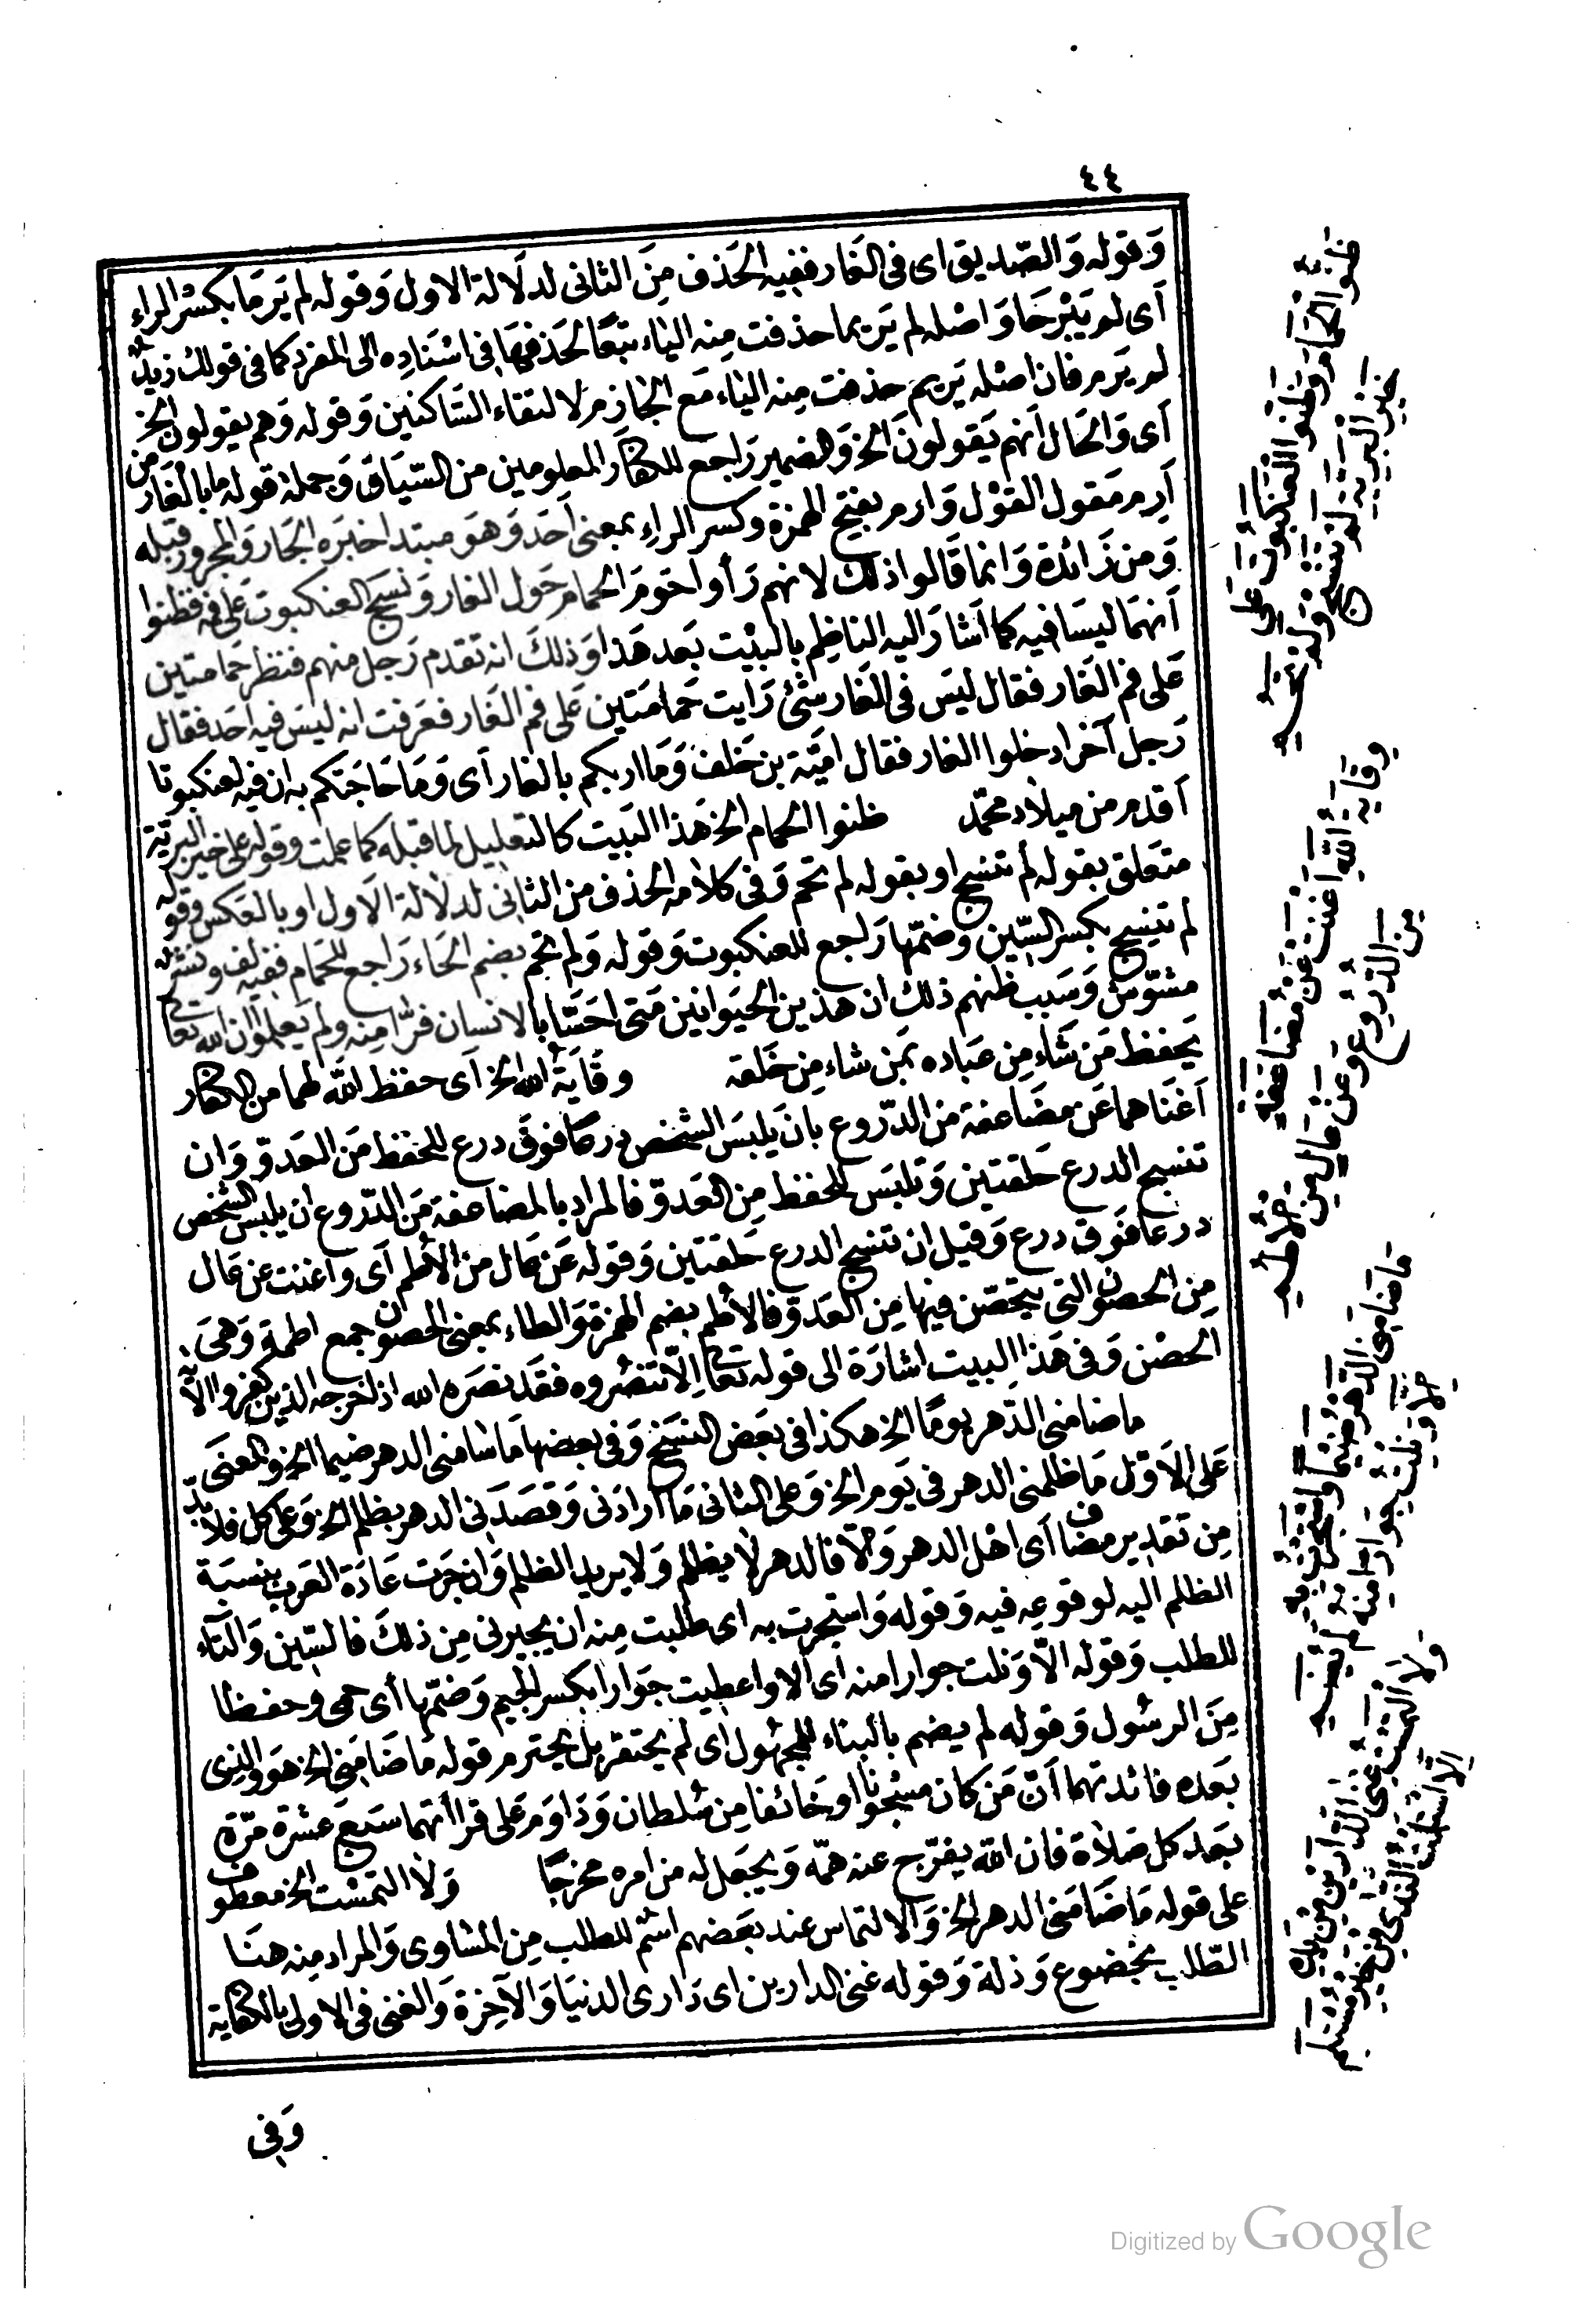 ٤٤
وَقوله وَالصّديق اى فى الغَار ففيه الحَذف مِنَ الثانى لدلَالة الاول وَقوله لم يَرِمَا بكسْر الراء
أى لم يَبْرحَا وَاصْله لم يَريما حذفت مِنه الياء تبعًا لحَذفهَا فى اسْنادِه الى المفرد كما فى قولك زيدٌ
لم يَرِم فان اصْله يَريم حذفت مِنه الياء مَع الجازم لالتقاء السَّاكنين وَقوله وَهم يقولون الخ
أى وَالحَال أنهم يَقولونَ الخ وَالضمير رَاجع للكفار المعلومين من السّيَاق وَجملة قوله ما بالغَار من
اَرِم مَقول القوْل وَارِم بفتح الهمزة وكسر الراءِ بمعنى أحَد وَهوَ مبتدا خبَره الجَار وَالمجرور قبله
وَمن زَائدة وَانما قَالوا ذلك لانهم رَأوا حَومَ الحمام حَول الغار وَنسج العنكبوت عَلى فمه فظنوا
أنهمَا ليسَا فيه كما أشارَ اليه الناظِم بالبيْت بَعد هَذا وَذلكَ انه تقدم رَجل منهم فنظر حمَامتين
عَلى فم الغَار فقال ليَس فى الغَار شئ رَايت حمامَتين عَلى فم الغَار فعَرفت انه ليسَ فيه احَد فقال
رَجل آخر ادخلوا الغار فقال اميَّة بن خَلف وَمَا اربكم بالغار أى وَمَا حَاجتكم به ان فيه لعنكبوتا
أقدم من ميلاد محمّد ظنوا الحمام الخ هَذا البَيت كالتعليل لما قبله كما علمت وقوله على خير البرية
متعَلق بقوله لم تنسج او بقوله لم تحم وَفى كلامه الحذف من الثانى لدلالة الاول او بالعَكس وقوله
لم تنسج بكسر السّين وَضمّها رَاجع للعنكبوت وَقوله وَلم تحم بضم الحَاء رَاجع للحَمام ففيه لف وَنشر
مشوّش وَسَبب ظنهم ذلك ان هذين الحيَوانين مَتى احَسّا بالانسان فرّا منه ولم يَعلموا ان الله تعالى
يَحفظ مَن شَاء مِن عبَاده بمَن شاء مِن خَلقه وقَايَةُ الله الخ أى حفظ الله لهما من الكفار
أغنَاهما عَن مضَاعفة من الدّروع بان يَلبَس الشخص درعًا فوق درع للحفظ مَن العَدوّ وَان
تنسج الدرع حَلقتين وَتلبَس للحفظ مِن العَدوّ فالمراد بالمضاعفة مَن الدّروع ان يلبس الشخص
درعا فَوق درع وَقيل ان تنسج الدرع حَلقتين وَقوله عَن عَال من الأطم أى وأغنت عن عَال
مِن الحصون التى يتحصّن فيها مِن العَدوّ فالأطم بضم الهمزة وَالطاء بمعنى الحصون جمع اطمة وَهىَ
الحصْن وَفى هَذا البيت اشارَة الى قوله تعالى اِلّا تنصُروه فقَد نصَره الله اذ اخرجه الذين كفروا الآية
ما ضامنى الدّهر يومًا الخ هكذا فى بعَض النسَخ وَفى بعضها مَا سامنى الدهر ضيما الخ والمعنَى
عَلى الأوّل مَا ظلمنى الدهر فى يَوم الخ وَعلى الثانى مَا أرادَنى وَقصَدَنى الدهر بظلم الخ وَعلى كل فلا بدّ
مِن تقدير مضاف أى اهْل الدهر وَالّا فالدهر لا يظلم وَلا يريد الظلم وَان جَرَت عَادَة العَرب بنسبَة
الظلم اليه لوقوعِه فيه وَقوله وَاستجرت به اى طلبت مِنه ان يجيرنى مِن ذلكَ فالسّين وَالتآء
للطلب وَقوله الّا وَنلت جوارا منه اى الا واعطيت جوَارا بكسر الجيم وَضمّها أى حمى وحفظا
مِنَ الرسُول وَقوله لم يضم بالبناء للمجهُول أى لم يحتقر بل يحترم قوله مَا ضَامَنى الخ هوَ والذى
بَعده فائدتهما أنّ مَن كان مسْجُونا او خَائفا مِن سُلطان وَدَاوَم عَلى قراأتهما سَبعَ عشرَة مّرة
بَعدَ كل صَلاة فان الله يفرّج عنه همّه وَيجعَل له من امره مخرجًا وَلا التمست الخ معطوف
على قوله مَا ضَامَنى الدهر الخ وَالالتماس عند بعَضهم اسْم للطلب مِن المسَاوى وَالمراد منه هنَا
الطّلب بخضوع وَذلة وَقوله غنى الدارين اى دَارى الدنيَا وَالآخِرة وَالغنى فى الاولى بالكفاية
وَفى
ظنوا الحمام وظنوا العنكبوت على
خير البرية لم تنسج ولم تحم
وقاية الله اغنت عن مضاعفة
من الدروع وعن عال من الأطم
ما ضامنى الدهر يوما واستجرت به
الا ونلت جوارا منه لم يضم
ولا التمست غنى الدارين من يده
الا استلمت الندى من خير مستلم
Digitized by Google